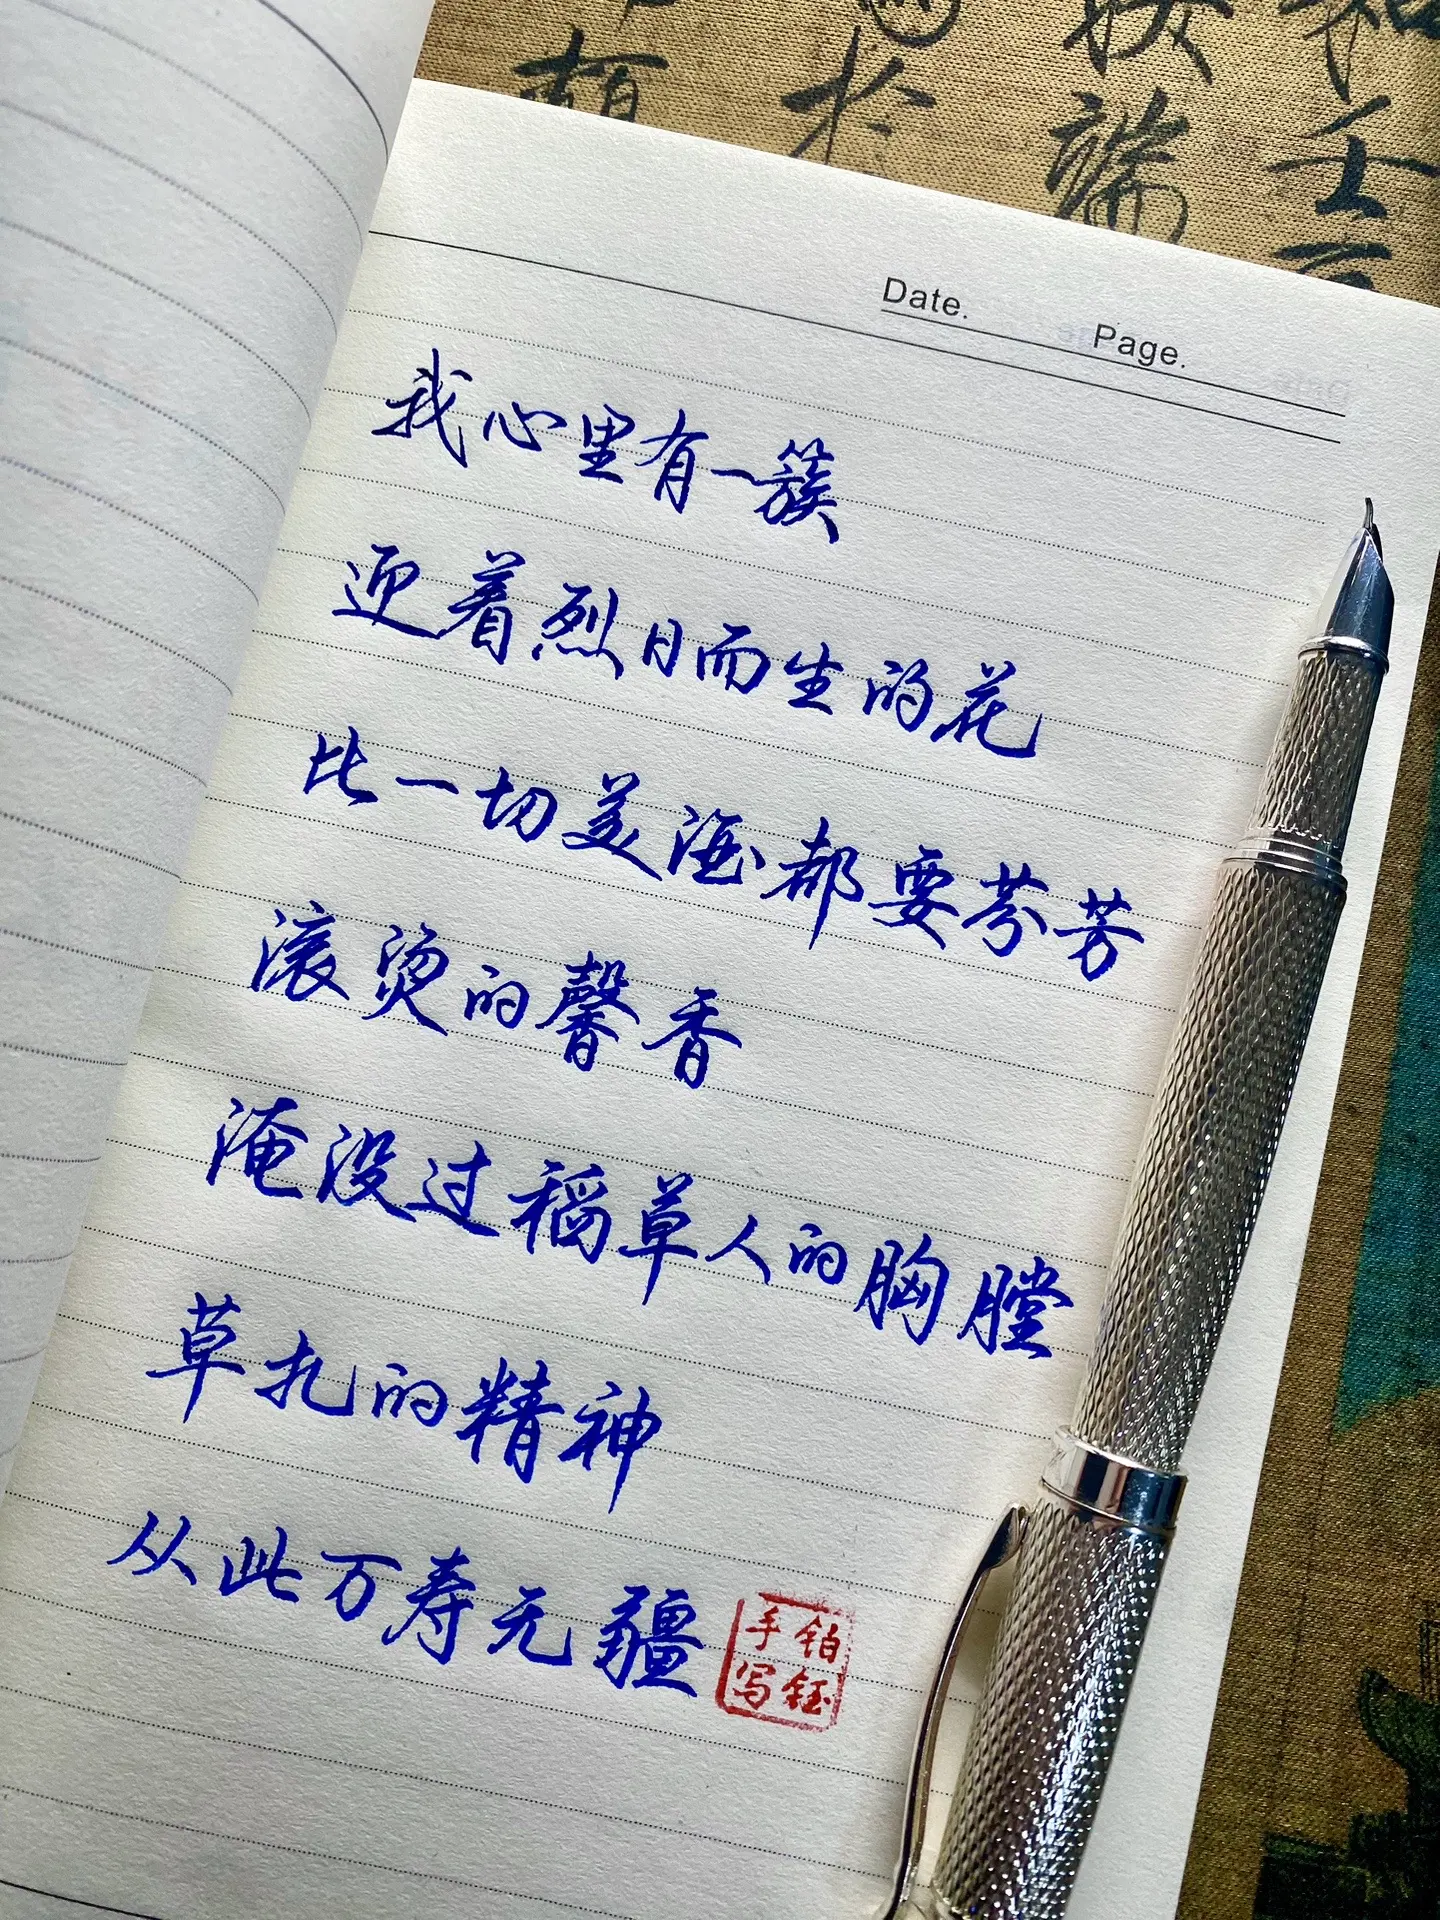 Date.
Page.
我心里有一簇
迎着烈日而生的花
比一切美酒都要芬芳
滚烫的馨香
淹没过稻草人的胸膛
草扎的精神
从此万寿无疆
铂钰
手写